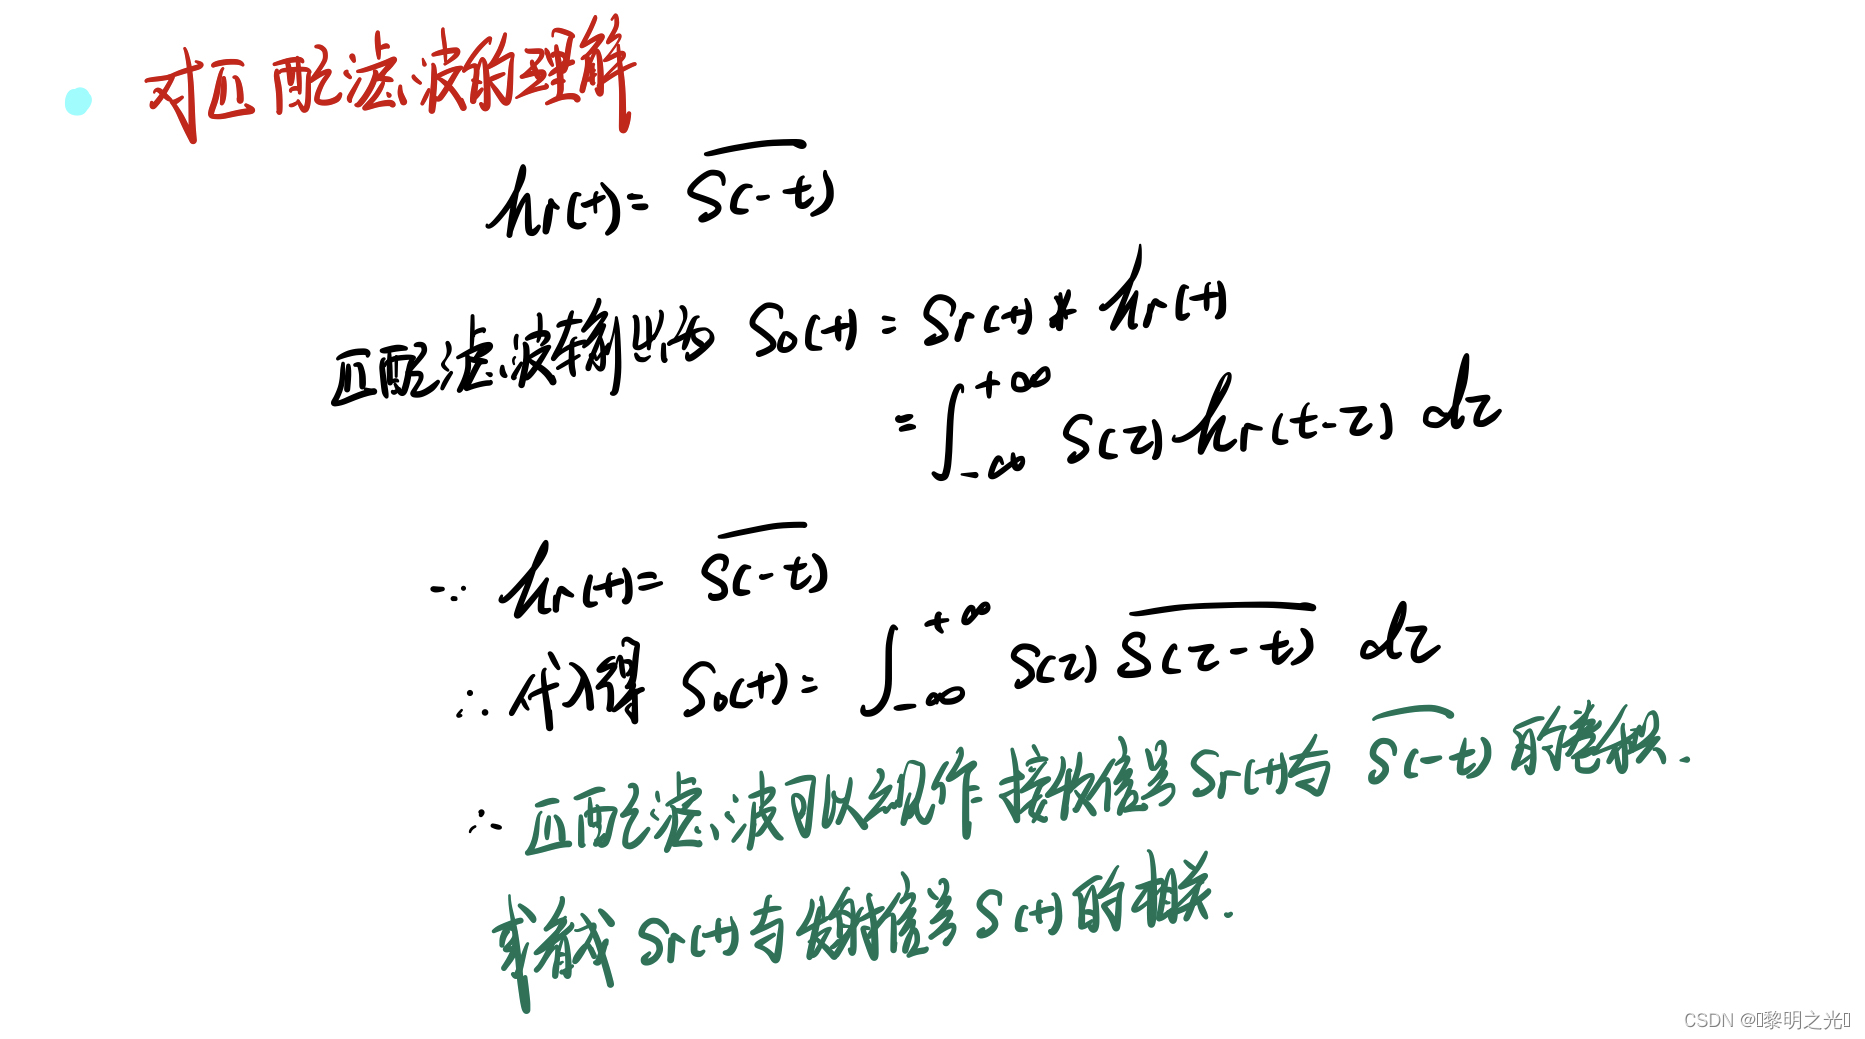 对匹配滤波的理解
hr(t) = \overline{S(-t)}
匹配滤波输出为 So(t) = Sr(t) * hr(t)
= ∫_{-∞}^{+∞} S(τ) hr(t-τ) dτ
∵ hr(t) = \overline{S(-t)}
∴ 代入得 So(t) = ∫_{-∞}^{+∞} S(τ) \overline{S(τ-t)} dτ
∴ 匹配滤波可以视作接收信号Sr(t)与 \overline{S(-t)} 的卷积.
或看成 Sr(t)与发射信号 S(t) 的相关.
CSDN @黎明之光